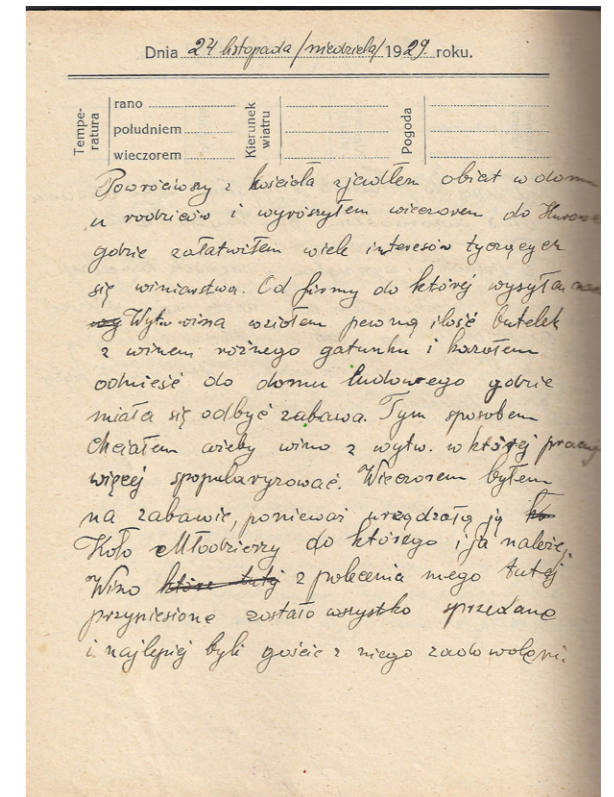 Dnia 24 listopada /niedziela/ 1929 roku.
Tempe-
ratura
rano
południem
wieczorem
Kierunek
wiatru
Pogoda
Powróciwszy z kościoła zjadłem obiat w domu
u rodziców i wyrószyłem wieczorem do
gdzie załatwiłem wiele interesów tyczących
się winiarstwa. Od firmy do której wysyłam
Wytw wina wziołem pewną ilość butelek
z winem rożnego gatunku i kazałem
odnieść do domu ludowego gdzie
miała się odbyć zabawa. Tym sposobem
chciałem ażeby wino z wytw. w której pracuję
więcej spopularyzować. Wieczorem byłem
na zabawie, ponieważ urządzała ją
Koło Młodzierzy do którego i ja należę.
Wino które tutej z polecenia mego tutej
przyniesione zostało wszystko sprzedane
i najlepiej byli goście z niego zadowoleni.